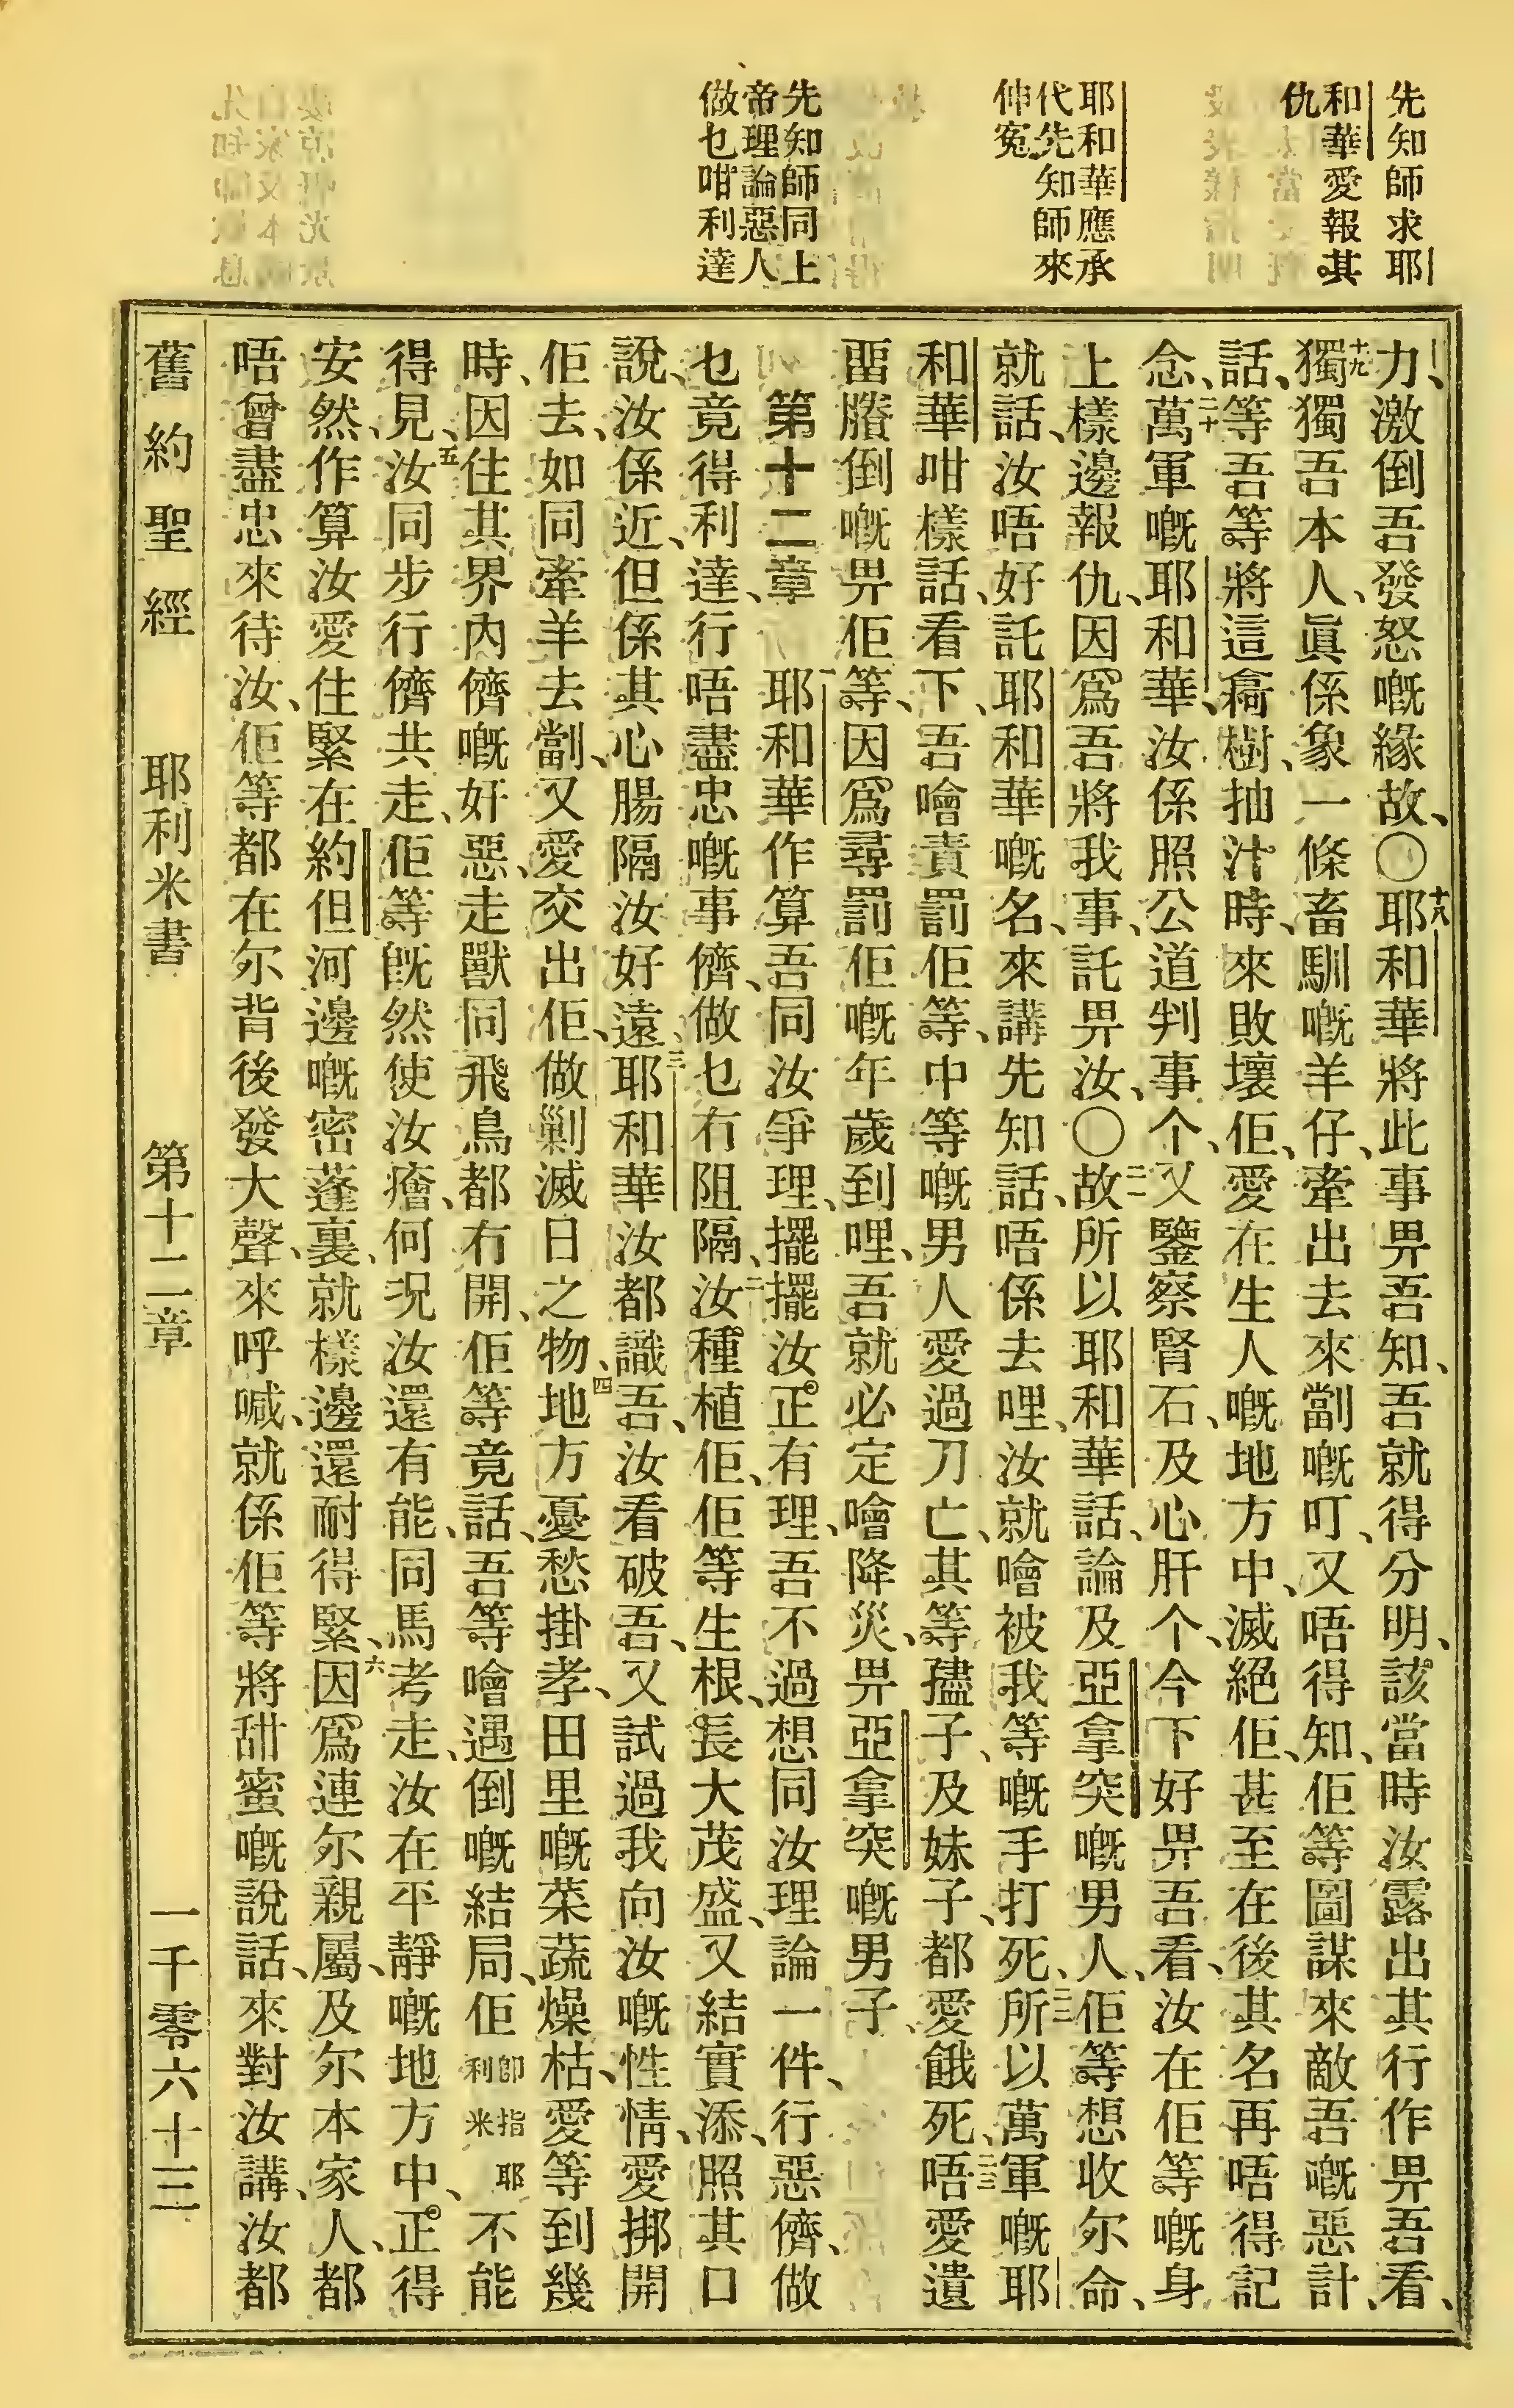 先知師求耶
和華愛報其
仇
耶和華應承
代先知師來
伸寃
先知師同上
帝理論惡人
做乜咁利達
力、激倒吾發怒嘅緣故、〇十八耶和華將此事畀吾知、吾就得分明、該當時汝露出其行作畀吾看、
十九獨獨吾本人、眞係象一條畜馴嘅羊仔、牽出去來劏嘅叮、又唔得知、佢等圖謀來敵吾嘅惡計、
話、等吾等將這樹抽汁時、來敗壞佢、愛在生人嘅地方中、滅絕佢、甚至在後其名再唔得記
念、二十萬軍嘅耶和華、汝係照公道判事个、又鑒察腎石、及心肝个、今下好畀吾看、汝在佢等嘅身
上樣邊報仇、因爲吾將我事、託畀汝、〇二一故所以耶和華話、論及亞拿突嘅男人、佢等想收尔命、
就話、汝唔好託耶和華嘅名、來講先知話、唔係去哩、汝就噲被我等嘅手打死、二二所以萬軍嘅耶
和華咁樣話、看下、吾噲責罰佢等、中等嘅男人愛過刀亡、其等孻子、及妹子、都愛餓死、二三唔愛遺
畱賸倒嘅畀佢等、因爲尋罰佢嘅年歲到哩、吾就必定噲降災、畀亞拿突嘅男子、
第十二章 耶和華作算吾同汝爭理、擺擺汝正有理、吾不過想同汝理論一件、行惡儕、做
乜竟得利達、行唔盡忠嘅事儕、做乜冇阻隔、二汝種植佢、佢等生根、長大茂盛、又結實添、照其口
說、汝係近、但係其心腸隔汝好遠、三耶和華汝都識吾、汝看破吾、又試過我向汝嘅性情、愛挷開
佢去、如同牽羊去劏、又愛交出佢、做剿滅日之物、四地方憂愁掛孝、田里嘅菜蔬燥枯、愛等到幾
時、因住其界內儕嘅奸惡、走獸同飛鳥都冇開、佢等竟話、吾等噲遇倒嘅結局、佢卽指耶利米不能
得見、五汝同步行儕共走、佢等旣然使汝癐、何况汝還有能、同馬考走、汝在平靜嘅地方中、正得
安然、作算汝愛住緊在約但河邊嘅密蓬裏、就樣邊還耐得緊、六因爲連尔親屬、及尔本家人、都
唔曾盡忠來待汝、佢等都在尔背後發大聲、來呼喊、就係佢等將甜蜜嘅說話、來對汝講、汝都
舊約聖經 耶利米書 第十二章 一千零六十三